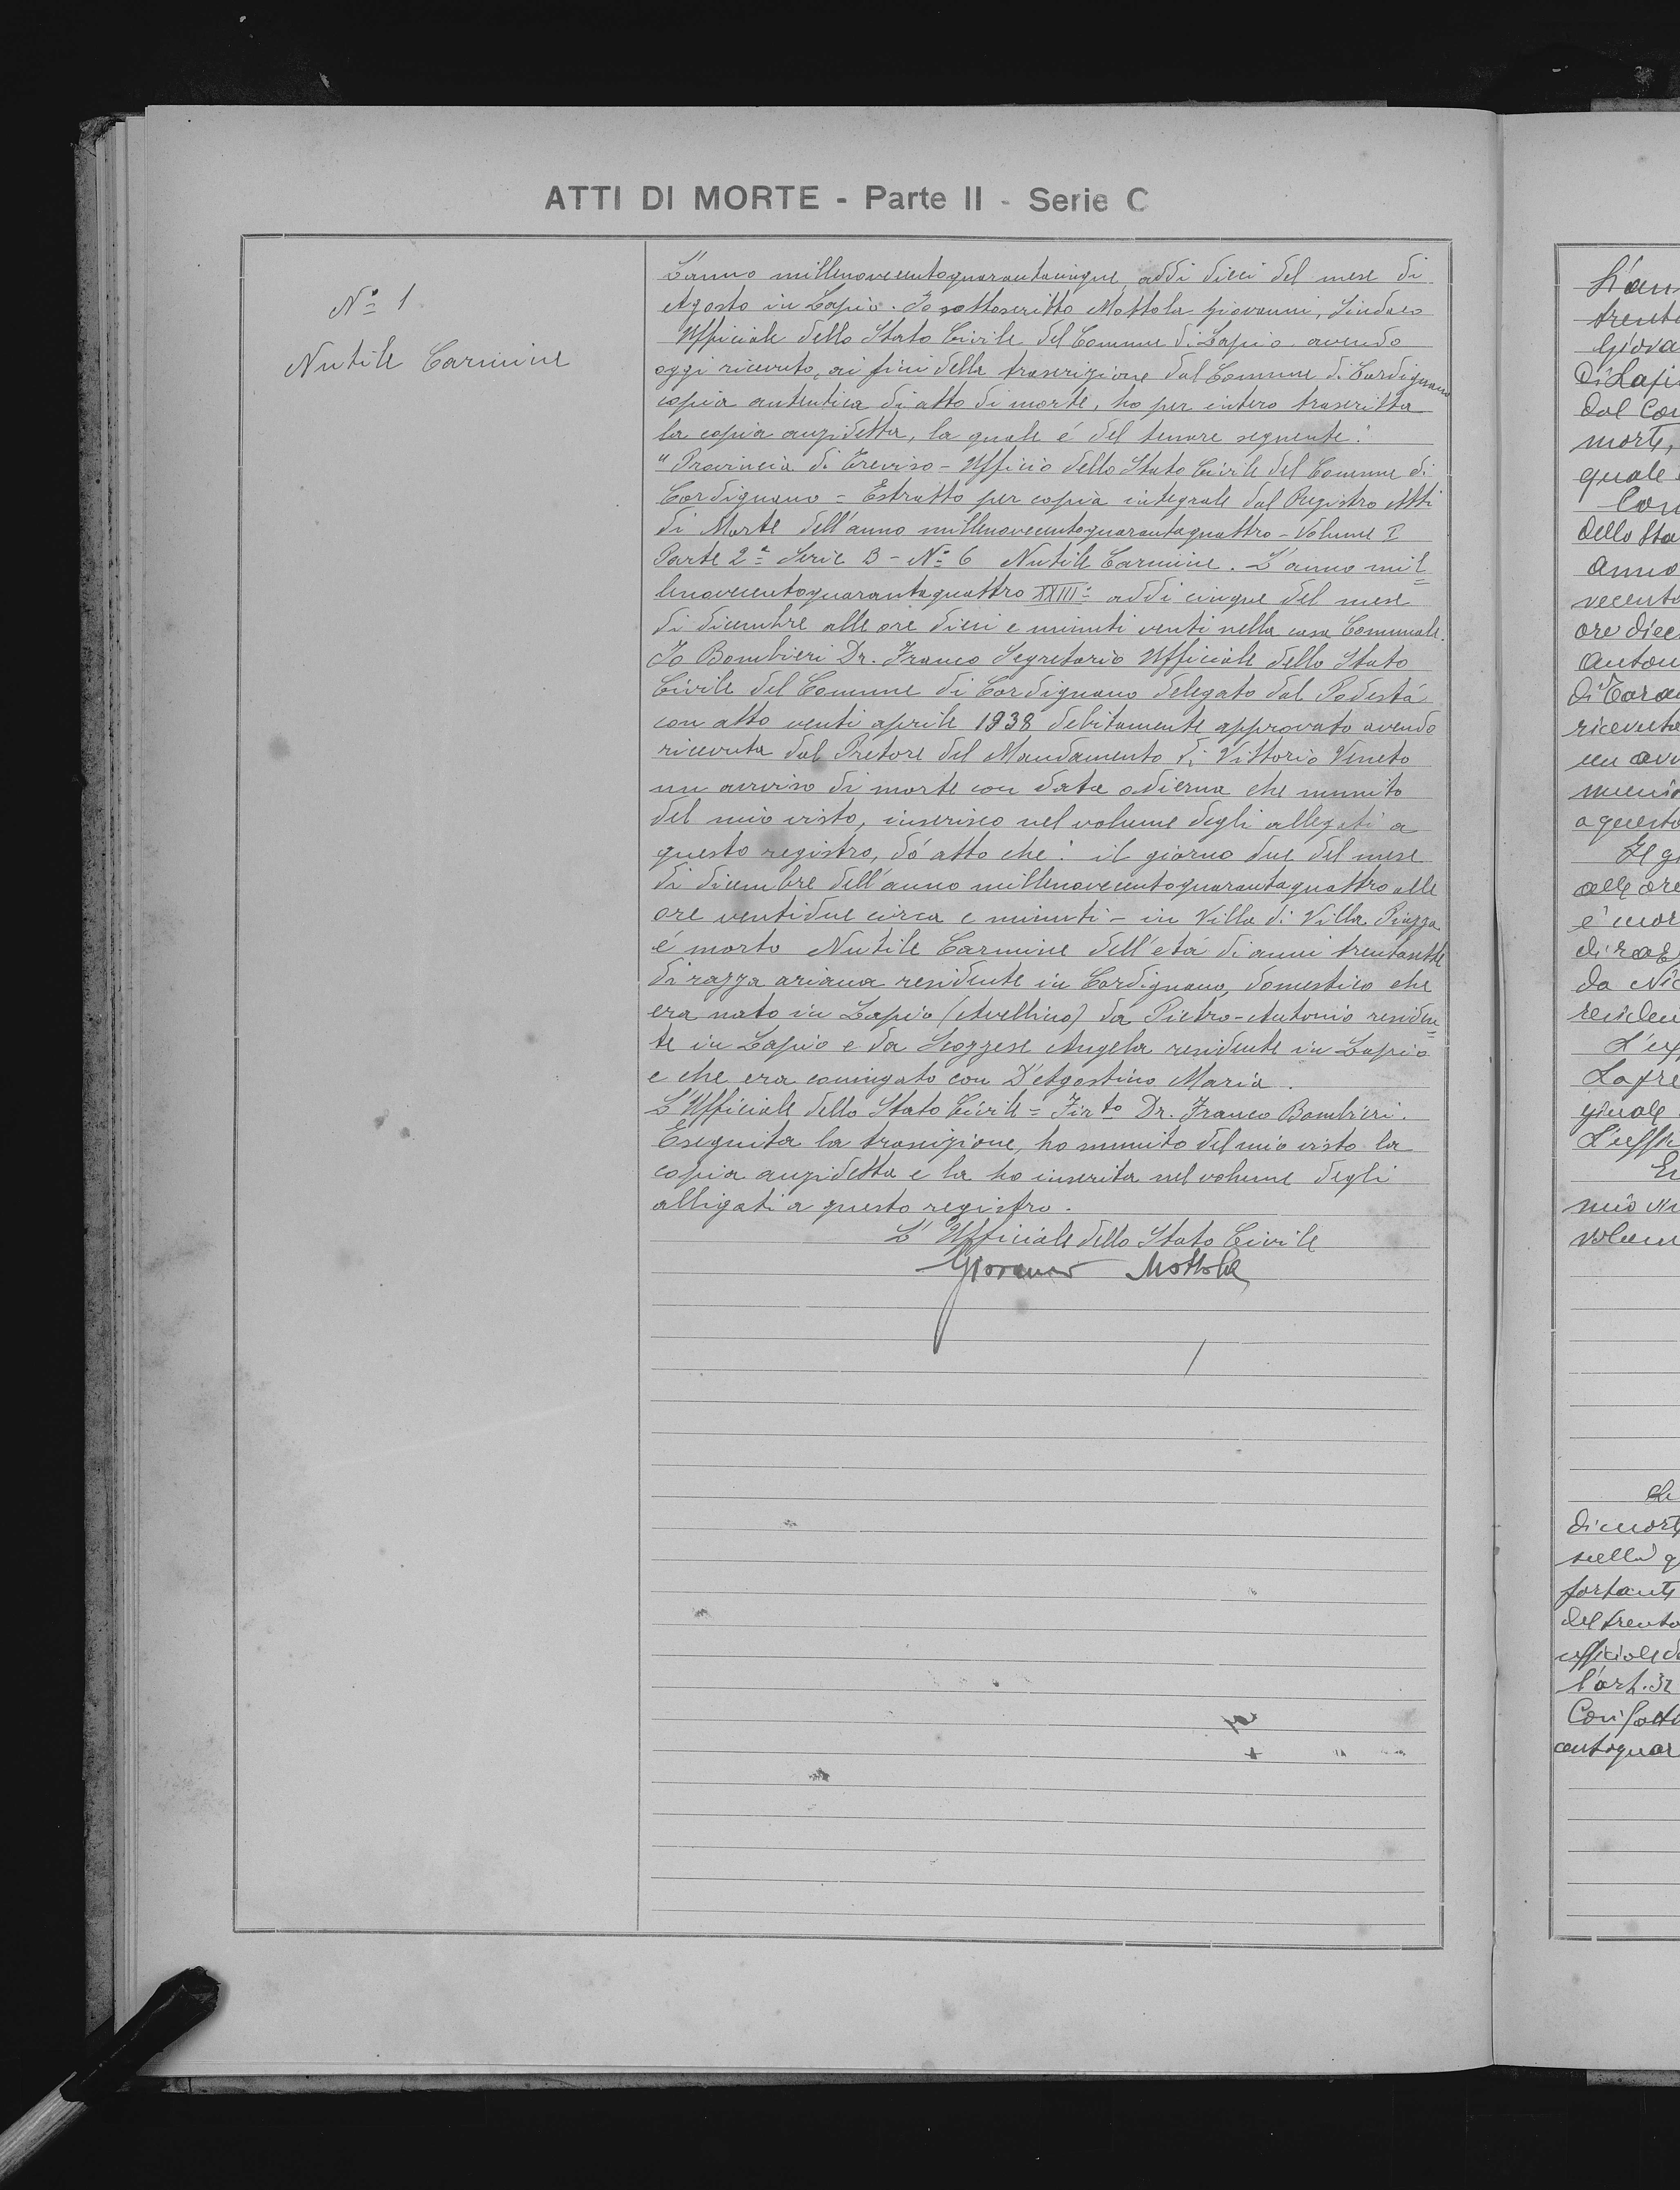 ATTI DI MORTE - Parte II - Serie C
Nº 1
Nutile Carmine
L'anno millenovecentoquarantacinque, addì dieci del mese di
Agosto in Lapio. Io sottoscritto Mottola Giovanni, Sindaco
Ufficiale dello Stato Civile del Comune di Lapio avendo
oggi ricevuto, ai fini della trascrizione dal Comune di Cordignano
copia autentica di atto di morte, ho per intero trascritta
la copia anzidetta, la quale é del tenore seguente:
"Provincia di Treviso - Ufficio dello Stato Civile del Comune di
Cordignano = Estratto per copia integrale dal Registro Atti
di Morte dell'anno millenovecentoquarantaquattro - Volume I
Parte 2ª Serie B - Nº 6 Nutile Carmine. L'anno mil=
lenovecentoquarantaquattro XXIIIº addì cinque del mese
di dicembre alle ore dieci e minuti venti nella casa Comunale.
Io Bombieri Dr. Franco Segretario Ufficiale dello Stato
Civile del Comune di Cordignano delegato dal Podestà
con atto venti aprile 1938 debitamente approvato avendo
ricevuta dal Pretore del Mandamento di Vittorio Veneto
un avviso di morte con data odierna che munito
del mio visto, inserisco nel volume degli allegati a
questo registro, dó atto che: il giorno due del mese
di dicembre dell'anno millenovecentoquarantaquattro alle
ore ventidue circa e minuti - in Villa di Villa Piazza
é morto Nutile Carmine dell'etá di anni trentasette
di razza ariana residente in Cordignano, domestico che
era nato in Lapio (Avellino) da Pietro-Antonio residen=
te in Lapio e da Scozzese Angela residente in Lapio
e che era coniugato con D'Agostino Maria.
L'Ufficiale dello Stato Civile = Firto Dr. Franco Bombieri.
Eseguita la trascrizione, ho munito del mio visto la
copia anzidetta e la ho inserita nel volume degli
alligati a questo registro.
L'Ufficiale dello Stato Civile
Giovanni Mottola
L'an
Giova
Di Lapi
dal Com
morte,
quale
dello Sta
anno
vecento
ore diec
Anton
riceveta
a questo
alle ore
è mor
di raz
da Nic
residen
quale
volum
di morte
portante
del trenta
ufficiale d
l'art. 32